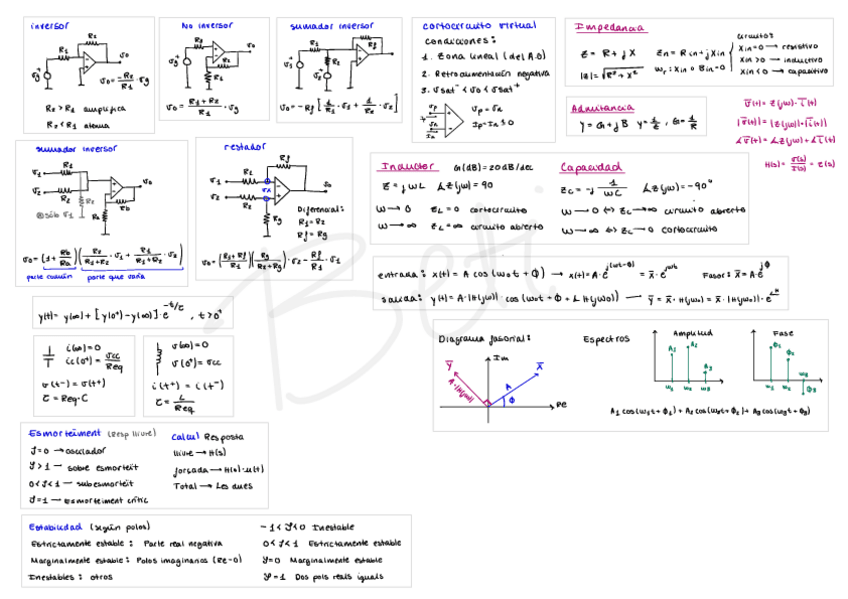 inversor
R₂
R₁
v₀
vg
v₀ = -R₂/R₁ · vg
R₂ > R₁ amplifica
R₂ < R₁ atenua
No inversor
v₀
vg
v₀ = (R₁+R₂)/R₁ · vg
sumador inversor
v₀ = -Rf [1/R₁ · v₁ + 1/R₂ · v₂]
cortocircuito virtual
condiciones:
1. Zona lineal (del A.O)
2. Retroalimentación negativa
3. vsat⁻ < v₀ < vsat⁺
Vp = Vn
Ip = In = 0
Impedancia
Z = R + jX
|Z| = √(R² + X²)
Zn = Rin + jXin
Wr: Xin o Bin = 0
circuitos
Xin = 0 → resistivo
Xin > 0 → inductivo
Xin < 0 → capacitivo
Admitancia
Y = G + jB
v̄(t) = Z(jw) · ī(t)
|v̄(t)| = |Z(jw)| · |ī(t)|
∡v̄(t) = ∡Z(jw) + ∡ī(t)
sumador inversor
R₁
v₁
v₂
R₂
v₀
Rb
Ra
v₀ = (1 + Rb/Ra)(R₂/(R₁+R₂) · v₁ + R₁/(R₁+R₂) · v₂)
parte común
parte que varia
restador
Rf
v₁
R₁
v₂
R₂
Rg
Diferencial:
R₁ = R₂
Rf = Rg
v₀ = ((R₁+Rf)/R₁)(Rg/(R₂+Rg)) · v₂ - Rf/R₁ · v₁
Inductor G(dB) = 20dB/dec
Z = jwL ∡Z(jw) = 90
w → 0 ZL = 0 cortocircuito
w → ∞ ZL = ∞ circuito abierto
Capacidad
Zc = -j 1/wC ∡Z(jw) = -90°
w → 0 ⇔ Zc → ∞ circuito abierto
w → ∞ ⇔ Zc → 0 cortocircuito
entrada: x(t) = A cos(w₀t + ϕ) → x(t) = A·e^j(wt-ϕ) = X̄·e^jwt Fasor: X̄ = A·e^jϕ
salida: y(t) = A·|H(jw)| · cos(w₀t + ϕ + ∡H(jw₀)) → Ȳ = X̄·H(jw₀)
y(t) = y(∞) + [y(0⁺) - y(∞)] · e^-t/τ , t > 0⁺
i(∞) = 0
ic(0⁺) = vcc/Req
v(t⁻) = v(t⁺)
τ = Req·C
v(∞) = 0
v(0⁺) = vcc
i(t⁺) = i(t⁻)
τ = L/Req
Diagrama fasorial:
Im
Ȳ
X̄
A·|H(jw)|
A
ϕ
Re
Espectros
Amplitud
A₁
A₂
A₃
w₁ w₂ w₃
Fase
ϕ₁
ϕ₂
w₁ w₂
w₃
ϕ₃
A₁cos(w₁t + ϕ₁) + A₂cos(w₂t + ϕ₂) + A₃cos(w₃t + ϕ₃)
Esmorteïment (Resp lliure)
ζ = 0 → oscilador
ζ > 1 → sobre esmorteït
0 < ζ < 1 → subesmorteït
ζ = 1 → Esmorteïment crític
Calcul Resposta
lliure → H(s)
forçada → H(s)·u(t)
Total → Les dues
Estabilidad (según polos)
Estrictamente estable: Parte real negativa
Marginalmente estable: Polos imaginarios (Re=0)
Inestables: otros
-1 < ζ < 0 Inestable
0 < ζ < 1 Estrictamente estable
ζ = 0 Marginalmente estable
ζ = 1 Dos pols reals iguals
Beti